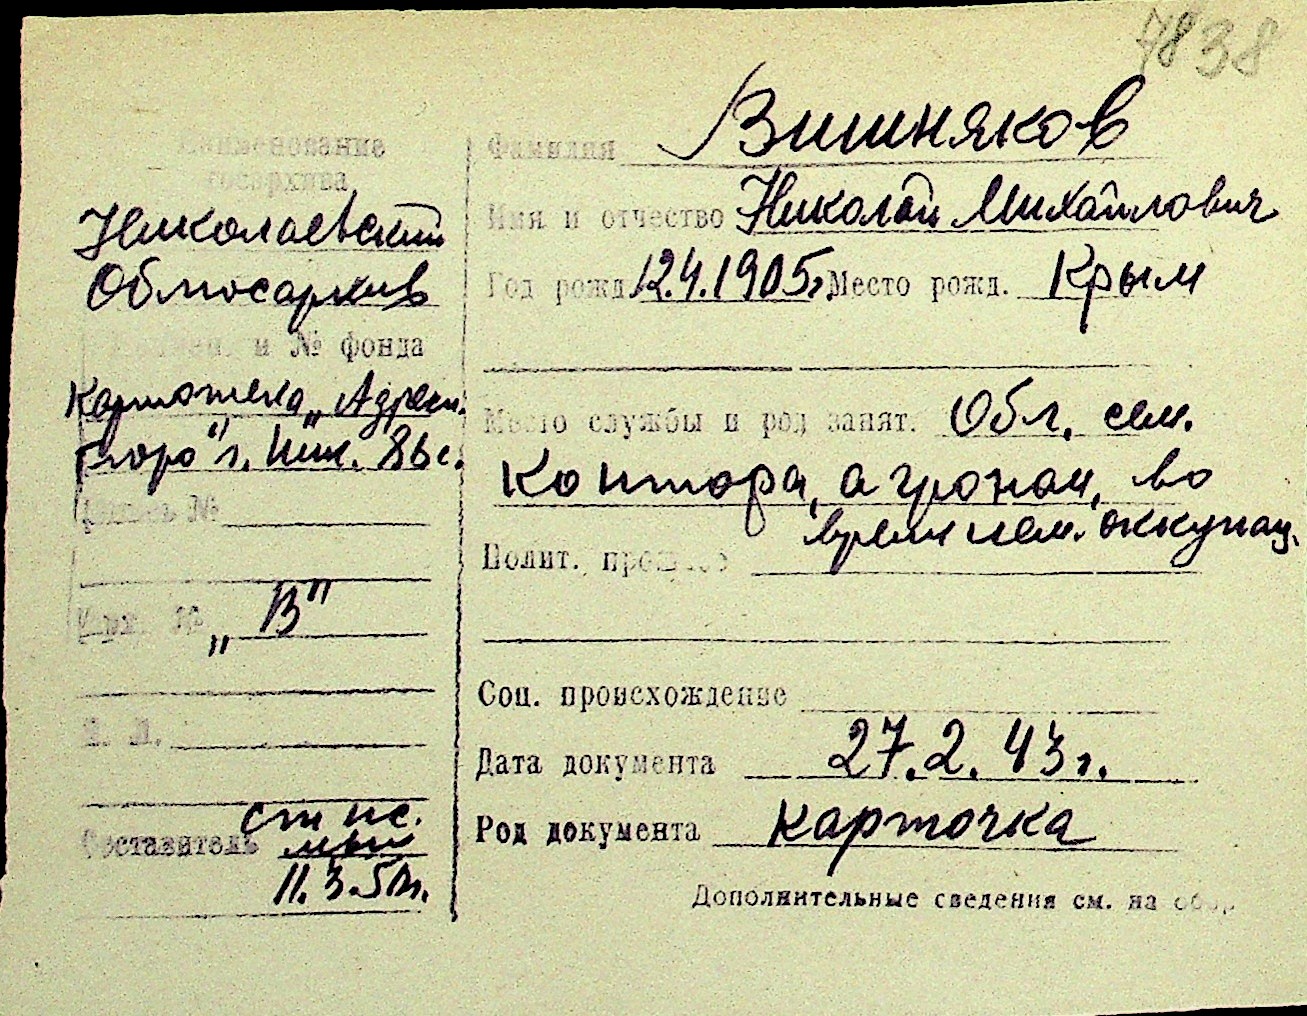 7838
Наименование
госархива
Николаевский
Облгосархив
и № фонда
Картотека „Адресн.
бюро" г. Ник.
Опись №
„В"
Составитель
11.3.
Фамилия Вишняков
Имя и отчество Николай Михайлович
Год рожд. 12.4.1905г. Место рожд. Крым
Место службы и род занят. Обл. сем.
контора, агроном, во
время нем. оккупац.
Полит. прошлое
Соц. происхождение
Дата документа 27.2.43г.
Род документа карточка
Дополнительные сведения см. на обор.